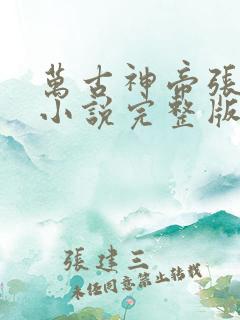 萬古神帝張
小說完整版
張建三
未經同意禁止轉載